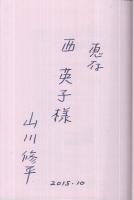 恵存
西 英子様
山川修平
2015.10